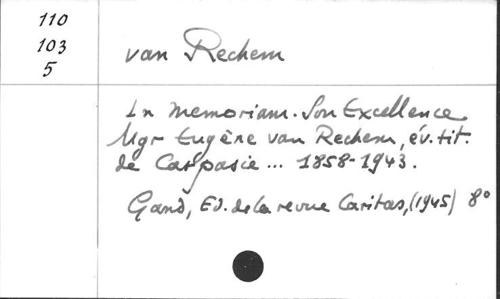 110
103
5
van Rechem
In memoriam. Son Excellence
Mgr Eugène van Rechem, év. tit.
de Carpasie... 1858-1943.
Gand, Ed. de la revue Caritas, (1945) 8°